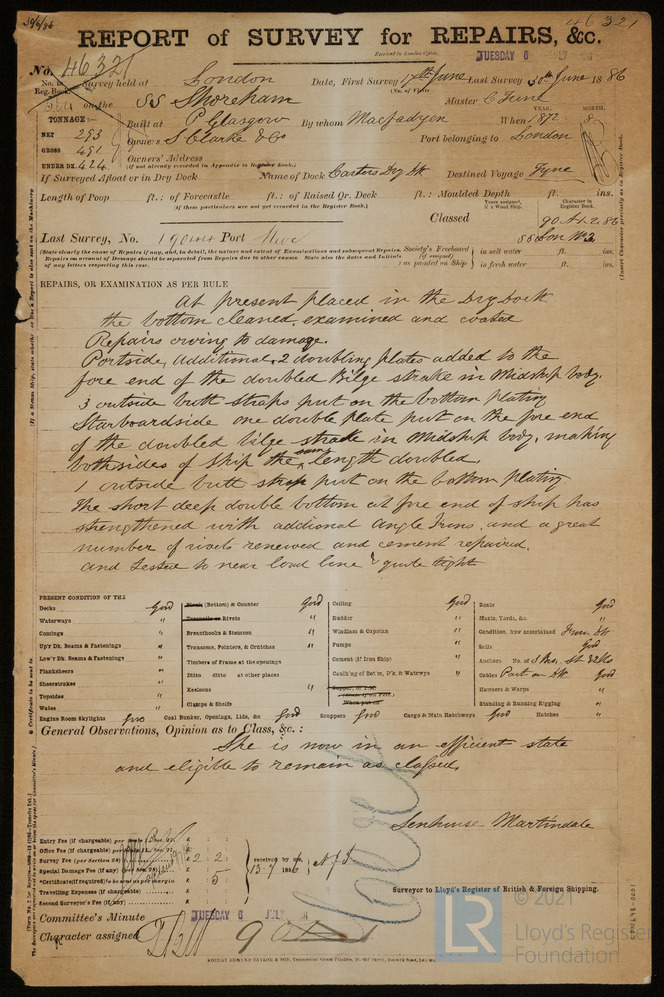 30/6/86
46321
REPORT of SURVEY for REPAIRS, &c.
Received in London Office, TUESDAY 6 JULY 86
No. 46321
No. in Reg. Book. Survey held at London Date, First Survey 17th June Last Survey 30th June 1886
264 on the SS Shoreham Master C June
TONNAGE:— Built at P Glasgow By whom MacFadyen When 1872 YEAR. MONTH. 8
NET 293 Owners S Clarke & Co Port belonging to London
GROSS 491 Owners' Address
(if not already recorded in Appendix to Register Book.)
UNDER DK. 424
If Surveyed Afloat or in Dry Dock Name of Dock Carters Dry Dk Destined Voyage Tyne
Length of Poop ft.: of Forecastle ft.: of Raised Qr. Deck ft.: Moulded Depth ft. ins.
(if these particulars are not yet recorded in the Register Book.)
Years assigned, if a Wood Ship. Character in Register Book.
Classed 90 A1. 2. 86
Last Survey, No. 19044 Port
(State clearly the cause of Repairs if any, and, in detail, the nature and extent of Examinations and subsequent Repairs. Repairs on account of Damage should be separated from Repairs due to other causes. State also the dates and Initials of any letters respecting this case.
Society's Freeboard (if assigned) as painted on Ship in salt water ft. ins.
in fresh water ft. ins.
REPAIRS, OR EXAMINATION AS PER RULE
At present placed in the Dry Dock
the bottom cleaned, examined and coated
Repairs owing to damage.
Portside, Additional, 2 doubling plates added to the
fore end of the doubled Bilge strake in Midship body.
3 outside butt straps put on the bottom plating
Starboardside one double plate put on the fore end
of the doubled bilge strake in Midship body, making
bothsides of Ship the same length doubled.
1 outside butt strap put on the bottom plating.
The short deep double bottom at fore end of ship has
strengthened with addional Angle Irons, and a great
number of rivets renewed and cement repaired.
and Tested to near load line & quite tight
PRESENT CONDITION OF THE
Decks Good
Waterways "
Comings "
Up'r Dk. Beams & Fastenings "
Low'r Dk. Beams & Fastenings "
Planksheers "
Sheerstrakes "
Topsides "
Wales "
Engine Room Skylights Good
Plank (Bottom) & Counter Good
Treenails or Rivets "
Breasthooks & Stemson "
Transoms, Pointers, & Crutches "
Timbers of Frame at the openings
Ditto ditto at other places
Keelsons "
Clamps & Shelfs
Coal Bunker, Openings, Lids, &c Good
Ceiling Good
Rudder "
Windlass & Capstan "
Pumps "
Cement (if Iron Ship) "
Caulk'ng of Bot'm, D'k, & Watrwys "
When put on
Scuppers Good Cargo & Main Hatchways Good
Boats Good
Masts, Yards, &c. "
Condition, how ascertained From Dk
Sails Good
Anchors No. of
Cables Good
Hawsers & Warps "
Standing & Running Rigging "
Hatches "
General Observations, Opinion as to Class, &c. :
She is now in an efficient state
and eligible to remain as classed.
Senhouse Martindale
Surveyor to Lloyd's Register of British & Foreign Shipping.
Entry Fee (if chargeable)
Office Fee (if chargeable)
Survey Fee (per Section 28) £ 2 : 2
Special Damage Fee (if any)
Certificate (if required) 5
Travelling Expenses (if chargeable)
Second Surveyor's Fee (if any)
received by me, 13-7 1886
Committee's Minute TUESDAY 6 JULY 86
Character assigned 90 A1
© 2021
LR Lloyd's Register Foundation